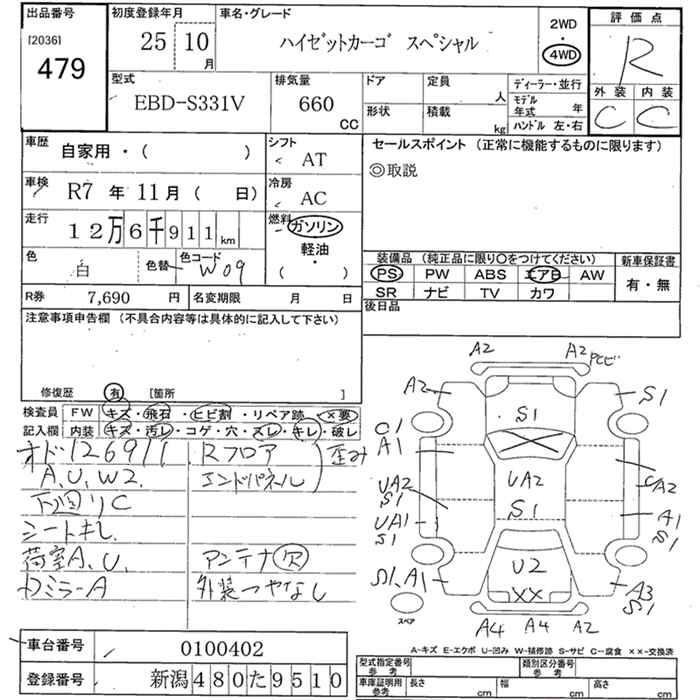 出品番号 初度登録年月 車名・グレード 2WD 評価点
[2036] 25 10月 ハイゼットカーゴ スペシャル ・ 4WD R
479
型式 排気量 ドア 定員 人 ディーラー・並行 外装 内装
EBD-S331V 660 CC 形状 積載 kg モデル年式 年 C C
ハンドル 左・右
車歴 自家用・( ) シフト AT セールスポイント (正常に機能するものに限ります)
車検 R7年11月( 日) 冷房 AC ◎取説
走行 12万6千911km 燃料 ガソリン・軽油・( )
色 白 色替 色コード W09
装備品 (純正品に限り〇をつけてください) 新車保証書
PS PW ABS エアB AW 有・無
SR ナビ TV カワ
R券 7,690円 名変期限 月 日 後日品
注意事項申告欄 (不具合内容等は具体的に記入して下さい)
修復歴 有 [箇所 ]
検査員 FW キズ・飛石・ヒビ割・リペア跡・×要
記入欄 内装 キズ・汚レ・コゲ・穴・スレ・キレ・破レ
オド126911 Rフロア 歪み
A,U,W2. エンドパネル
下廻りC
シートキレ
荷室A,U. アンテナ欠
Dミラ-A 外装つやなし
A2 A2 とビ
A2 S1
S1
C1
A1
UA2 UA2 UA2
S1 S1
UA1 A1
S1 S1
S1,A1 U2 A3
×× S1
スペア
A4 A4 A2
A-キズ E-エクボ U-凹み W-補修跡 S-サビ C-腐食 ××-交換済
車台番号 0100402
登録番号 新潟480た9510
型式指定番号 参考 類別区分番号 参考
車庫証明用 参考 長さ cm 幅 cm 高さ cm